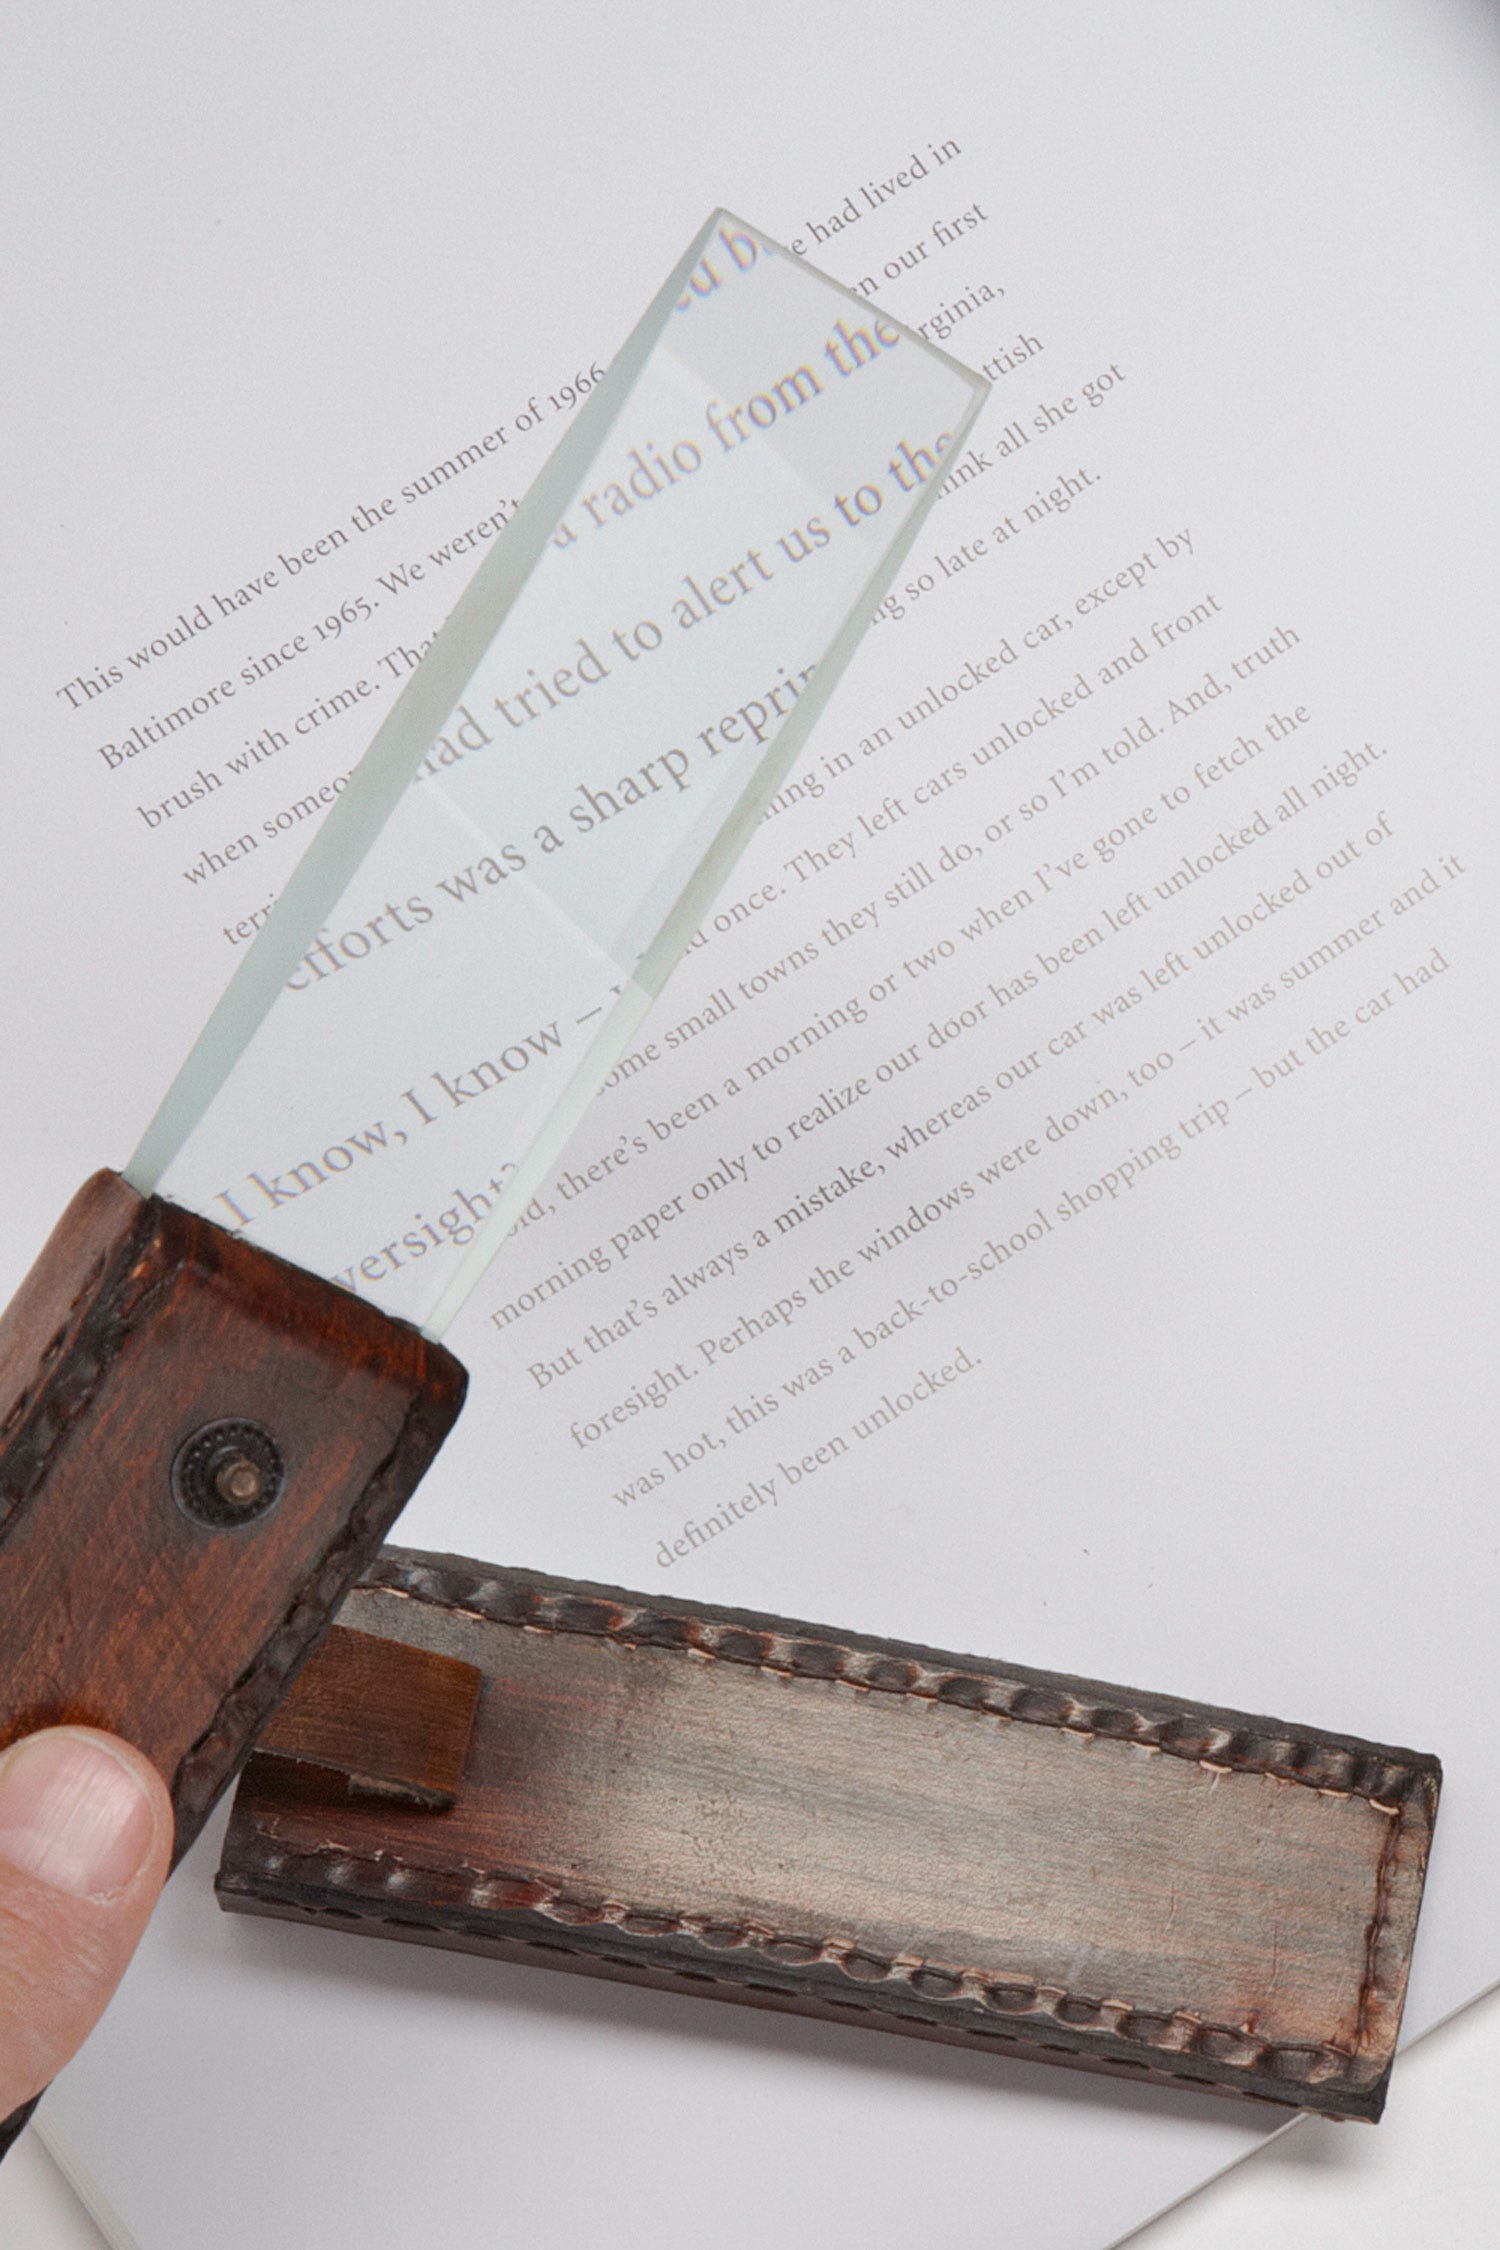 This would have been the summer of 1966 had lived in
Baltimore since 1965. We weren't our first
brush with crime.
when
radio from the
had tried to alert us to the all she got
efforts was a sharp so late at night.
I know, I know – in an unlocked car, except by
once. They left cars unlocked and front
small towns they still do, or so I'm told. And, truth
there's been a morning or two when I've gone to fetch the
morning paper only to realize our door has been left unlocked all night.
But that's always a mistake, whereas our car was left unlocked out of
foresight. Perhaps the windows were down, too – it was summer and it
was hot, this was a back-to-school shopping trip – but the car had
definitely been unlocked.